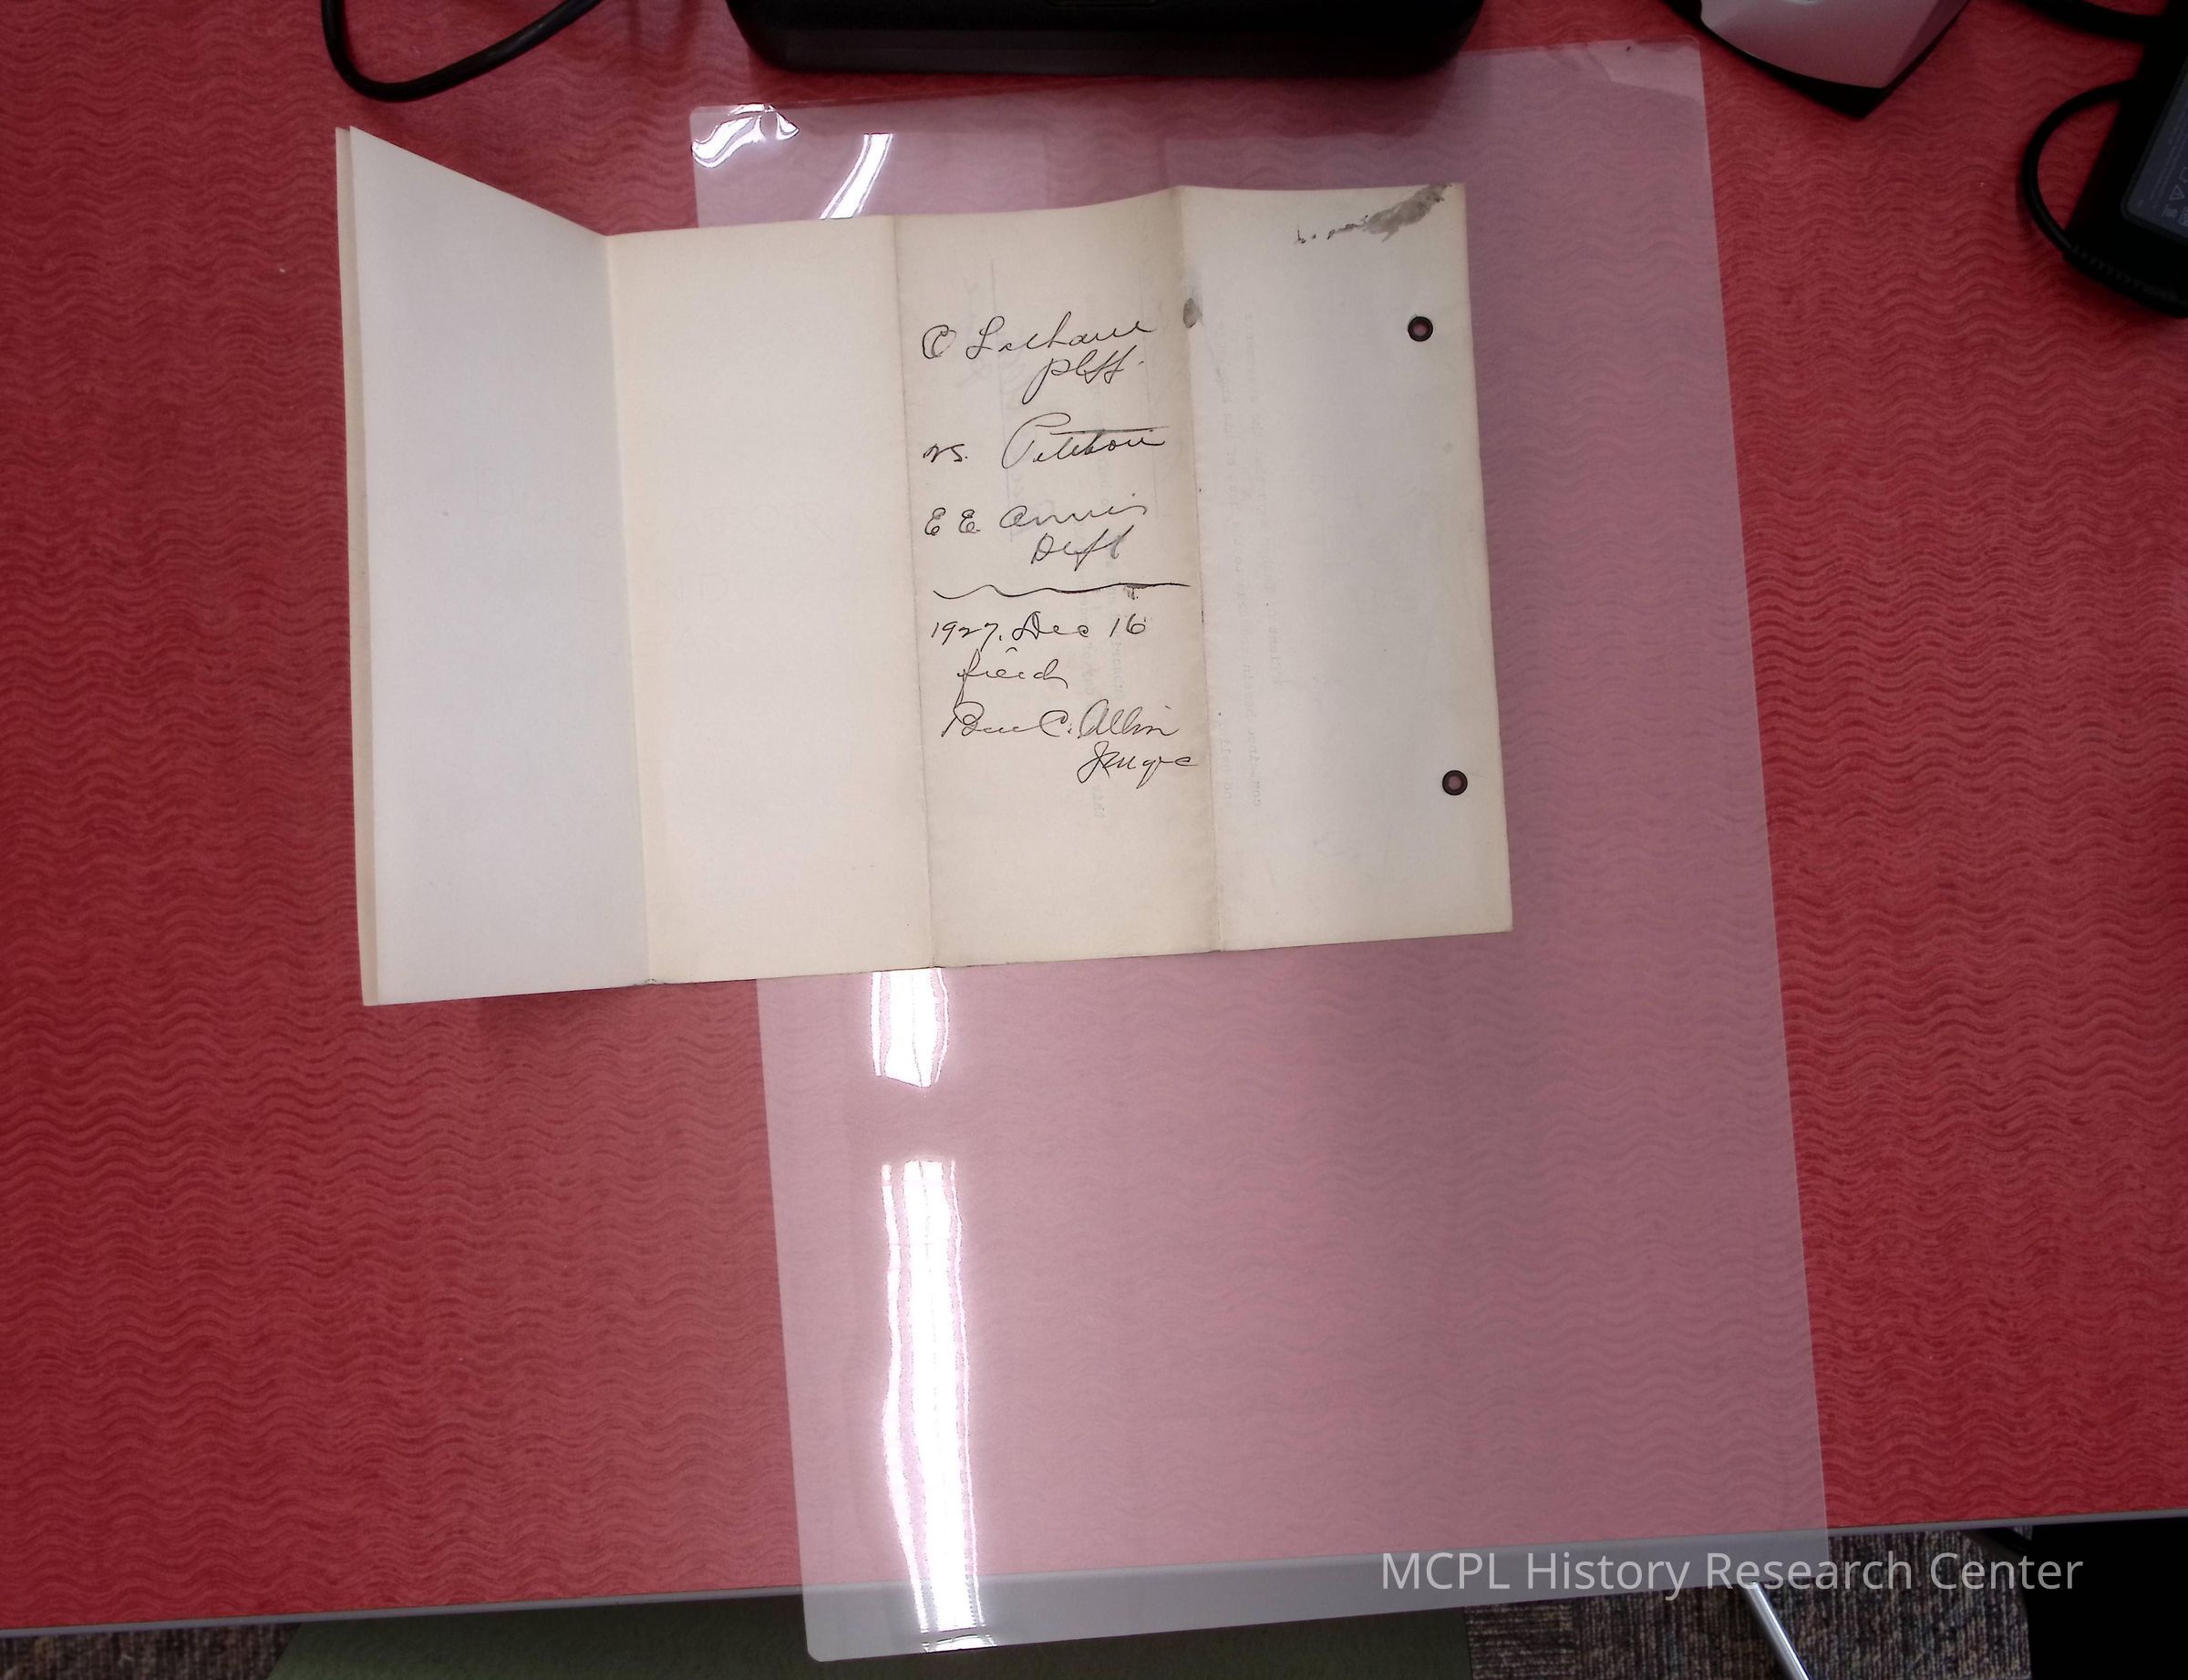 C Latham
Plff.
vs. Petition
E E Annis
Deft
1927. Dec 16
filed
Ben C. Allin
Judge
MCPL History Research Center